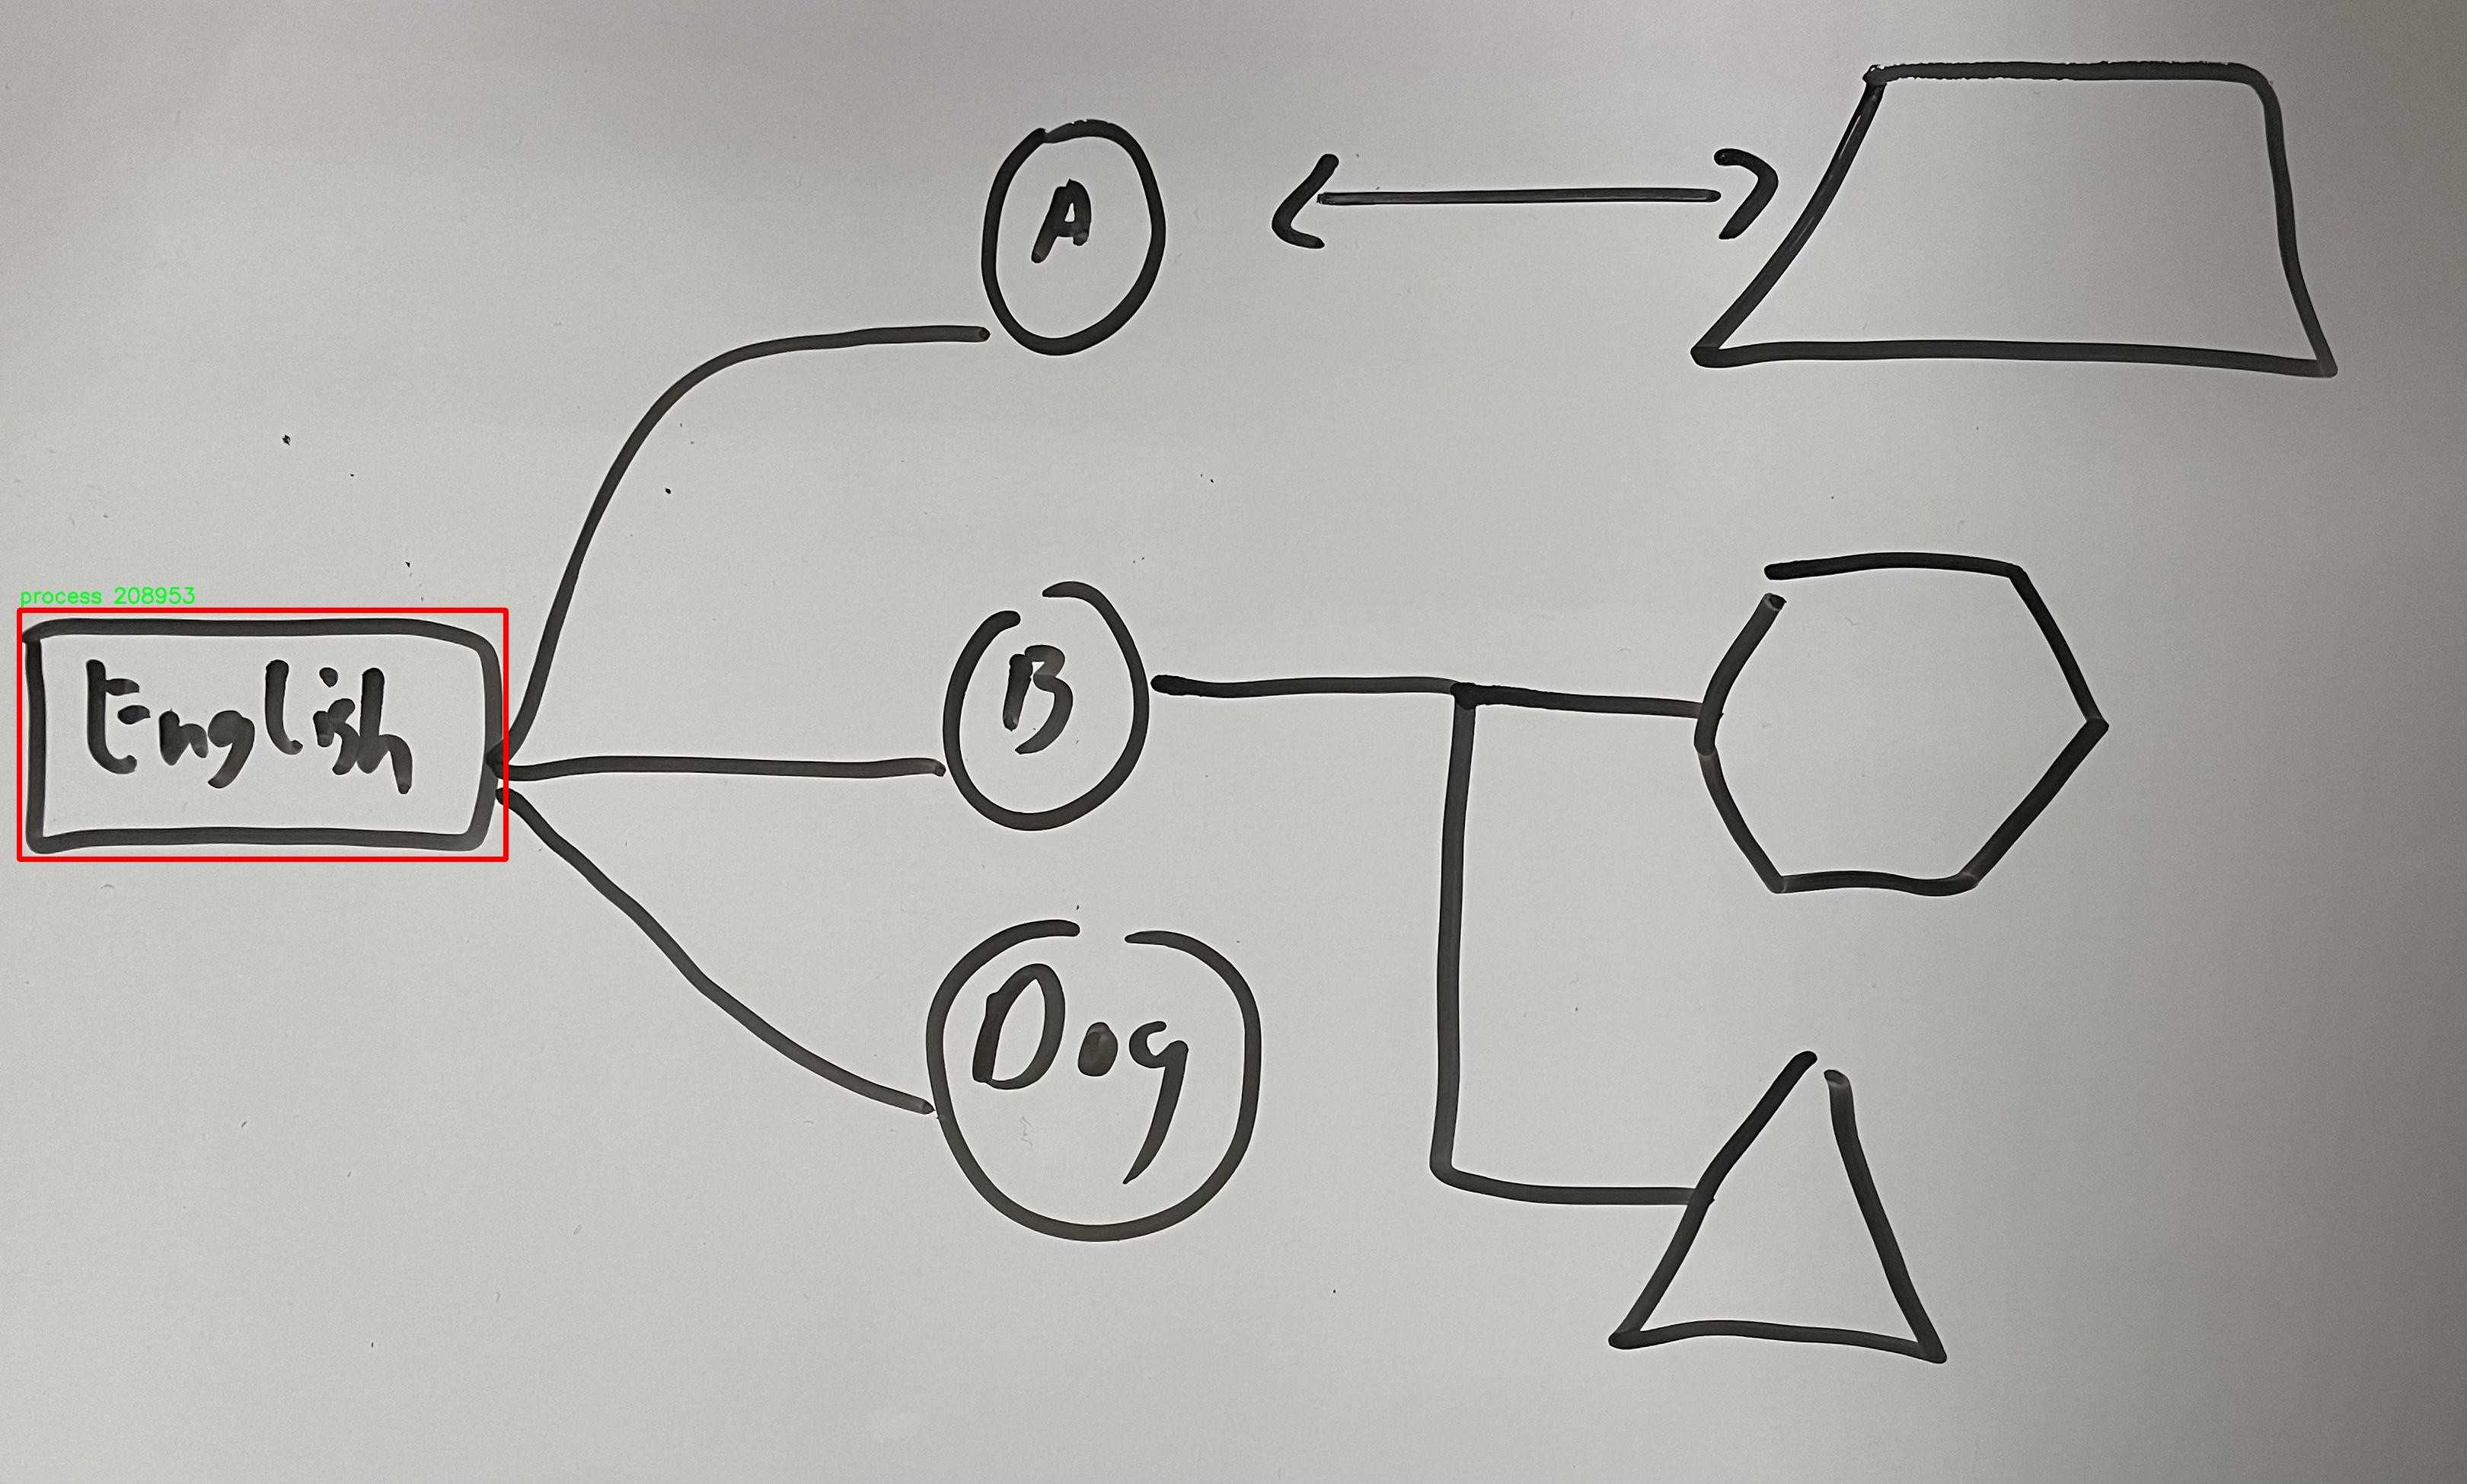 A
process 208953
English
B
Dog